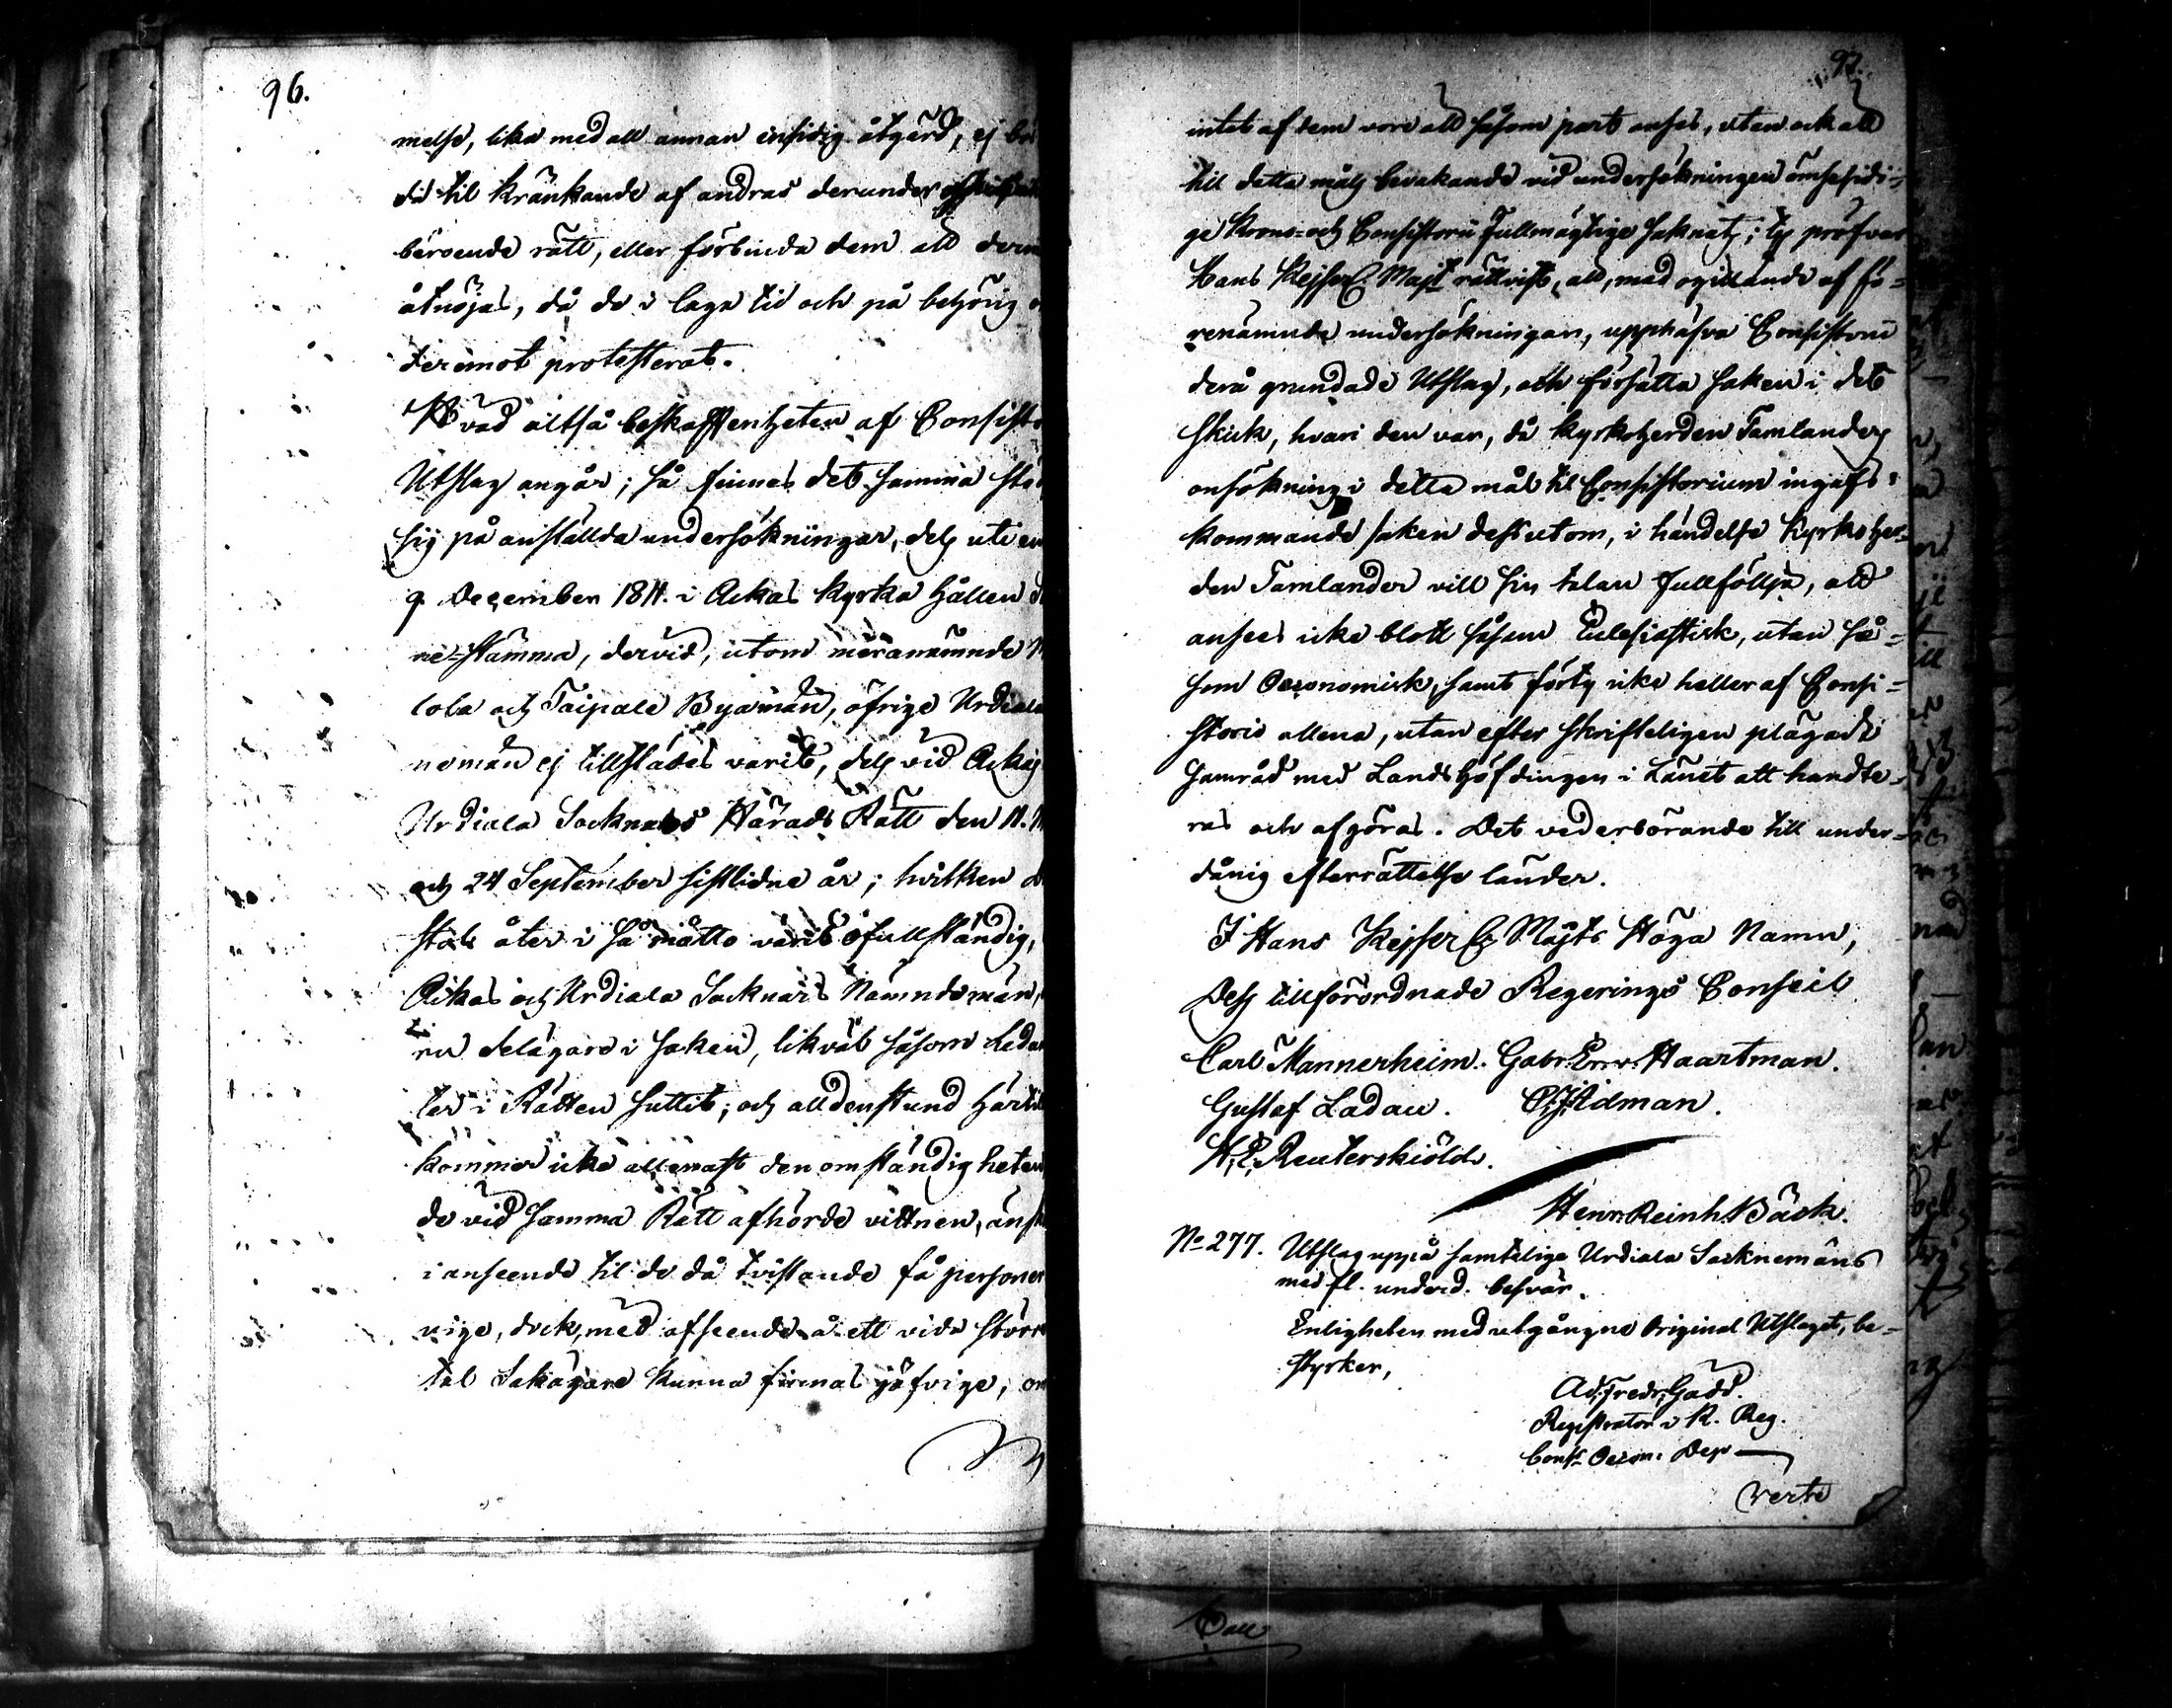 96.
melse, lika med all annan ensidig åtgärd, ej
til kränkande af andras derunder
beroende rätt, eller förbinda dem att
åtnöjas, då de i laga tid och på behörig
deremot protesterat.
Hvad altså beskaffenheten af
Utslag angår; så finnes det samma
sig på anställda undersökningar, dels uti
9 December 1811. i Ackas Kyrka hållen
ne-stämma, dervid, utom meranämnde
lola och Taipale Byamän, öfrige
nemän ej tillstädes varit, dels vid
Urdiala Socknars Härads Rätt den 11.
och 24 September sistlidne år; hvilken
åter i så måtto varit ofullständig,
Ackas och Urdiala Socknars Nämndemän,
delägare i saken, likväl såsom
ter i Rätten suttit; och alldenstund
kommer icke allenast den omständigheten
de vid samma Rätt afhörde vittnen,
i anseende til de då tvistande få personer
vige, dock, med afseende å ett vida
tal Sakägare kunna finnas jäfvige;
97.
intet af dem vore att såsom part anses, utan ock att
till detta måls bevakande vid undersökningen ömsesidi-
ge Krono- och Consistorii Fullmägtige saknats; Ty pröfvar
Hans Kejserl. Majt rättvist, att, med ogillande af fö-
renämnde undersökningar, upphäfva Consistorii
derå grundade Utslag, och försätta saken i det
skick, hvari den var, då Kyrkoherden Tamlanders
ansökning i detta mål til Consistorium ingafs:
kommande saken dessutom, i händelse Kyrkoher-
den Tamlander vill sin talan fullfölja, att
anses icke blott såsom Eclesiastisk, utan så-
som Oeconomisk, samt förty icke heller af Consi-
storio allena, utan efter skrifteligen plägadt
samråd med Landshöfdingen i Länet att handte-
ras och afgöras. Det vederbörande till under-
dånig efterrättelse länder.
I Hans Kejserlige Majts Höga Namn,
Dess tillförordnade Regerings Conseil
Carl Mannerheim. Gabr. Er. v. Haartman.
Gustaf Ladau. C. J. Idman.
H. E. Reuterskiöld.
Henr. Reinh. Bäck.
No 277. Utslag uppå samtelige Urdiala Socknemäns
med fl. underd. besvär.
Enligheten med utgångne Original Utslaget, be-
styrker,
Ad. Fredr. Gadd.
Registrator i K. Reg.
Cons. Oecon. Dep
Verte